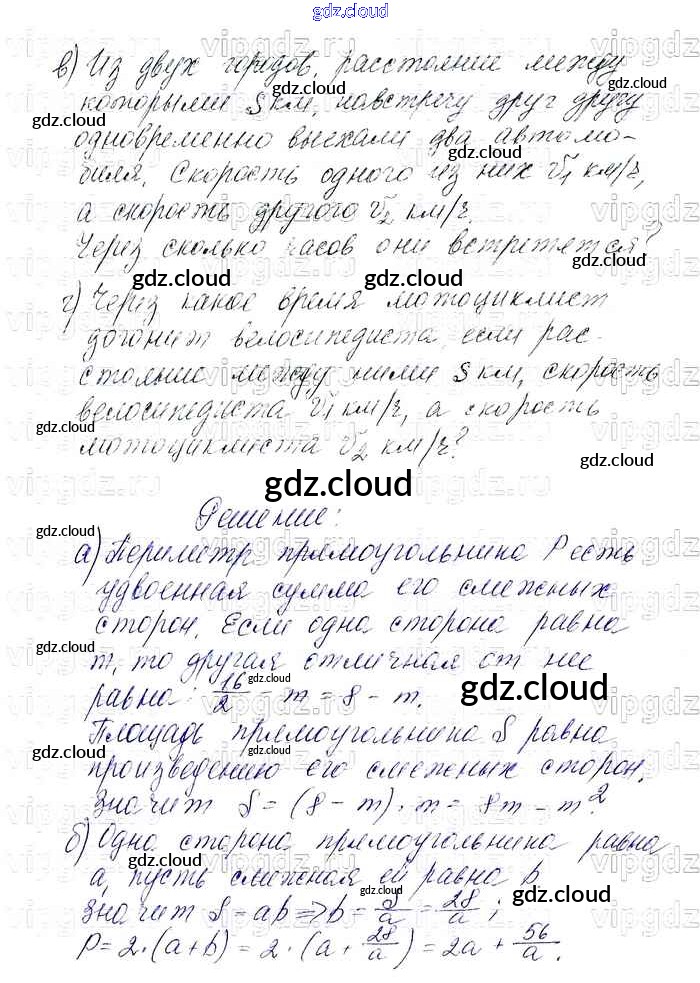 gdz.cloud
в) Из двух городов, расстояние между
которыми S км, навстречу друг другу
одновременно выехали два автомо-
биля. Скорость одного из них V₁ км/ч,
а скорость другого V₂ км/ч.
Через сколько часов они встретятся?
г) Через какое время мотоциклист
догонит велосипедиста, если рас-
стояние между ними S км, скорость
велосипедиста V₁ км/ч, а скорость
мотоциклиста V₂ км/ч?
gdz.cloud
Решение:
а) Периметр прямоугольника P есть
удвоенная сумма его смежных
сторон. Если одна сторона равна
m, то другая отличная от нее
равна: 16/2 - m = 8 - m.
Площадь прямоугольника S равна
произведению его смежных сторон.
Значит S = (8 - m) · m = 8m - m².
б) Одна сторона прямоугольника равна
a, пусть смежная ей равна b
Значит S = ab => b = S/a = 28/a;
P = 2·(a+b) = 2·(a + 28/a) = 2a + 56/a.